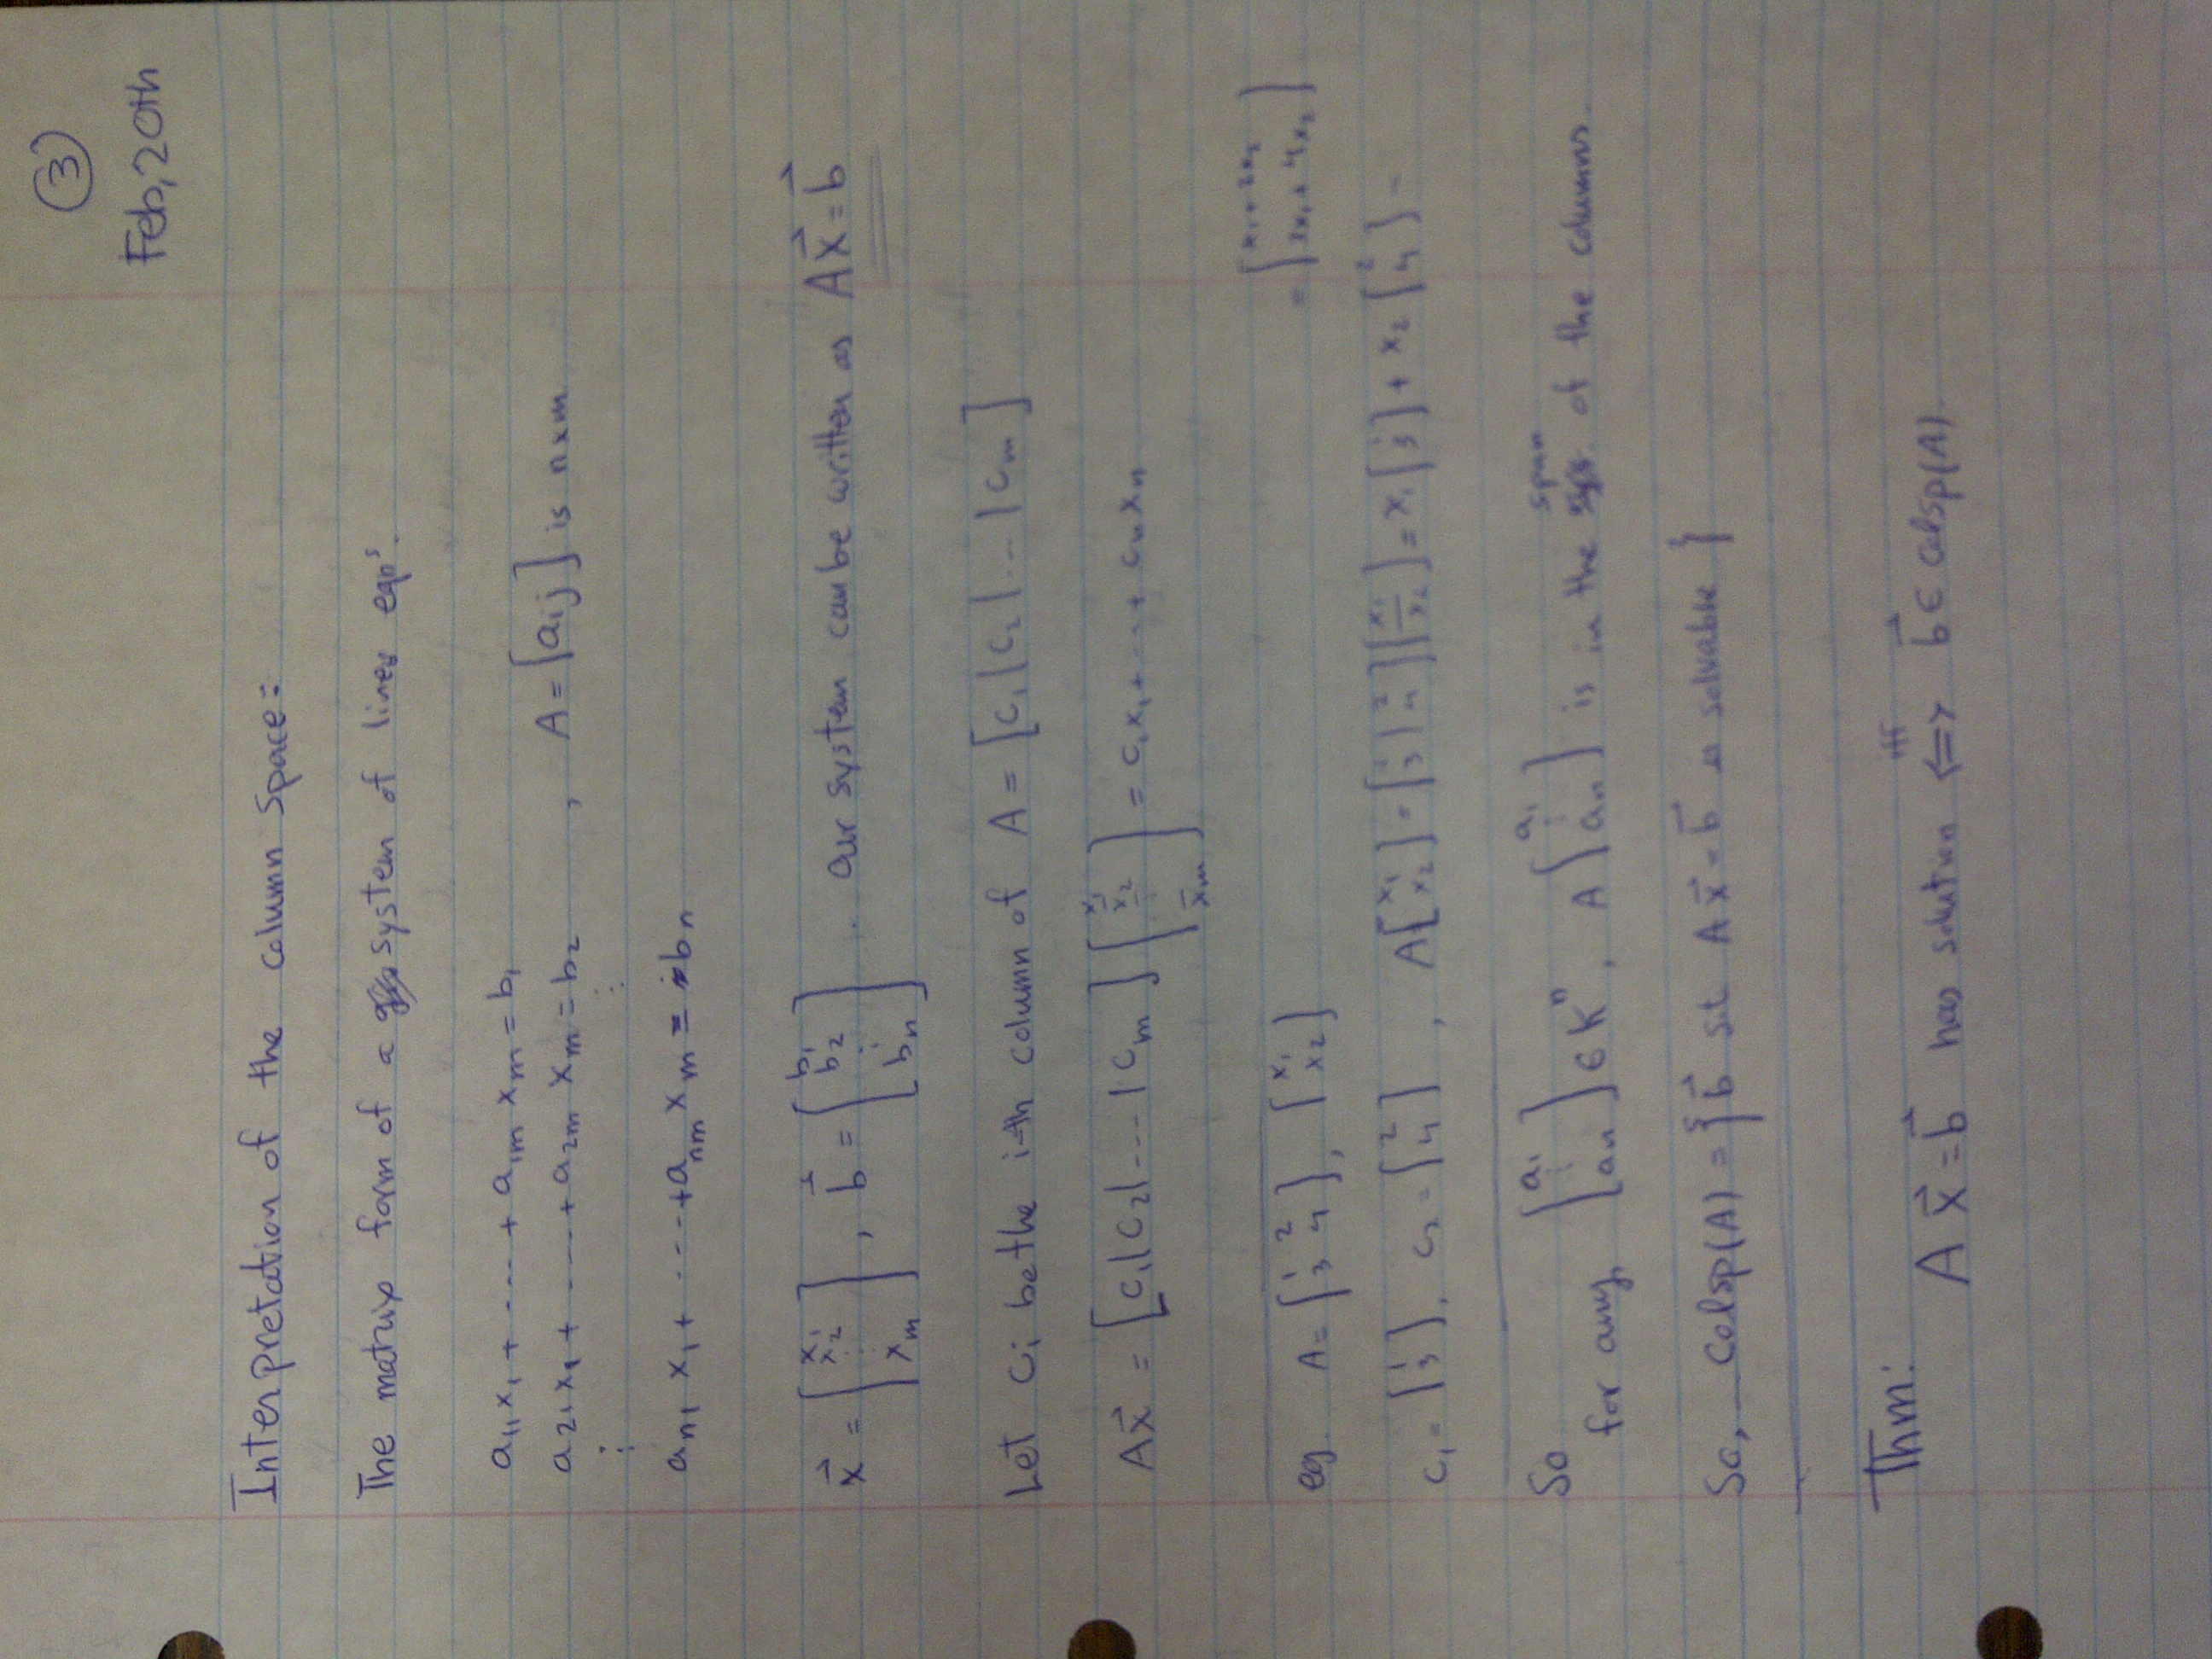 ③
Feb, 20th
Interpretation of the column space:
The matrix form of a system of linear eqnˢ.
a₁₁x₁ + ---- + a₁ₘ xₘ = b₁
a₂₁x₁ + ---- + a₂ₘ xₘ = b₂ , A = [aij] is n×m
⋮ ⋮
aₙ₁ x₁ + ---- + aₙₘ xₘ = bₙ
x⃗ = [x₁ x₂ ⋮ xₘ] , b⃗ = [b₁ b₂ ⋮ bₙ] . our system can be written as Ax⃗ = b⃗
Let cᵢ be the i-th column of A = [c₁|c₂|...|cₘ]
Ax⃗ = [c₁|c₂|---|cₘ] [x₁ x₂ ⋮ xₘ] = c₁x₁ + ---- + cₙxₙ
eg. A = [1 2 3 4], [x₁ x₂]
= [x₁ + 2x₂ 3x₁ + 4x₂]
c₁ = [1 3], c₂ = [2 4] , A[x₁ x₂] = [1 3|2 4][x₁ x₂] = x₁[1 3] + x₂[2 4] =
So
for any [a₁ ⋮ aₙ] ∈ Kⁿ, A[a₁ ⋮ aₙ] is in the span of the columns.
So, Colsp(A) = {b⃗ s.t Ax⃗ = b⃗ is solvable}
Thm:
Ax⃗ = b⃗ has solution iff ⟺ b⃗ ∈ Colsp(A)